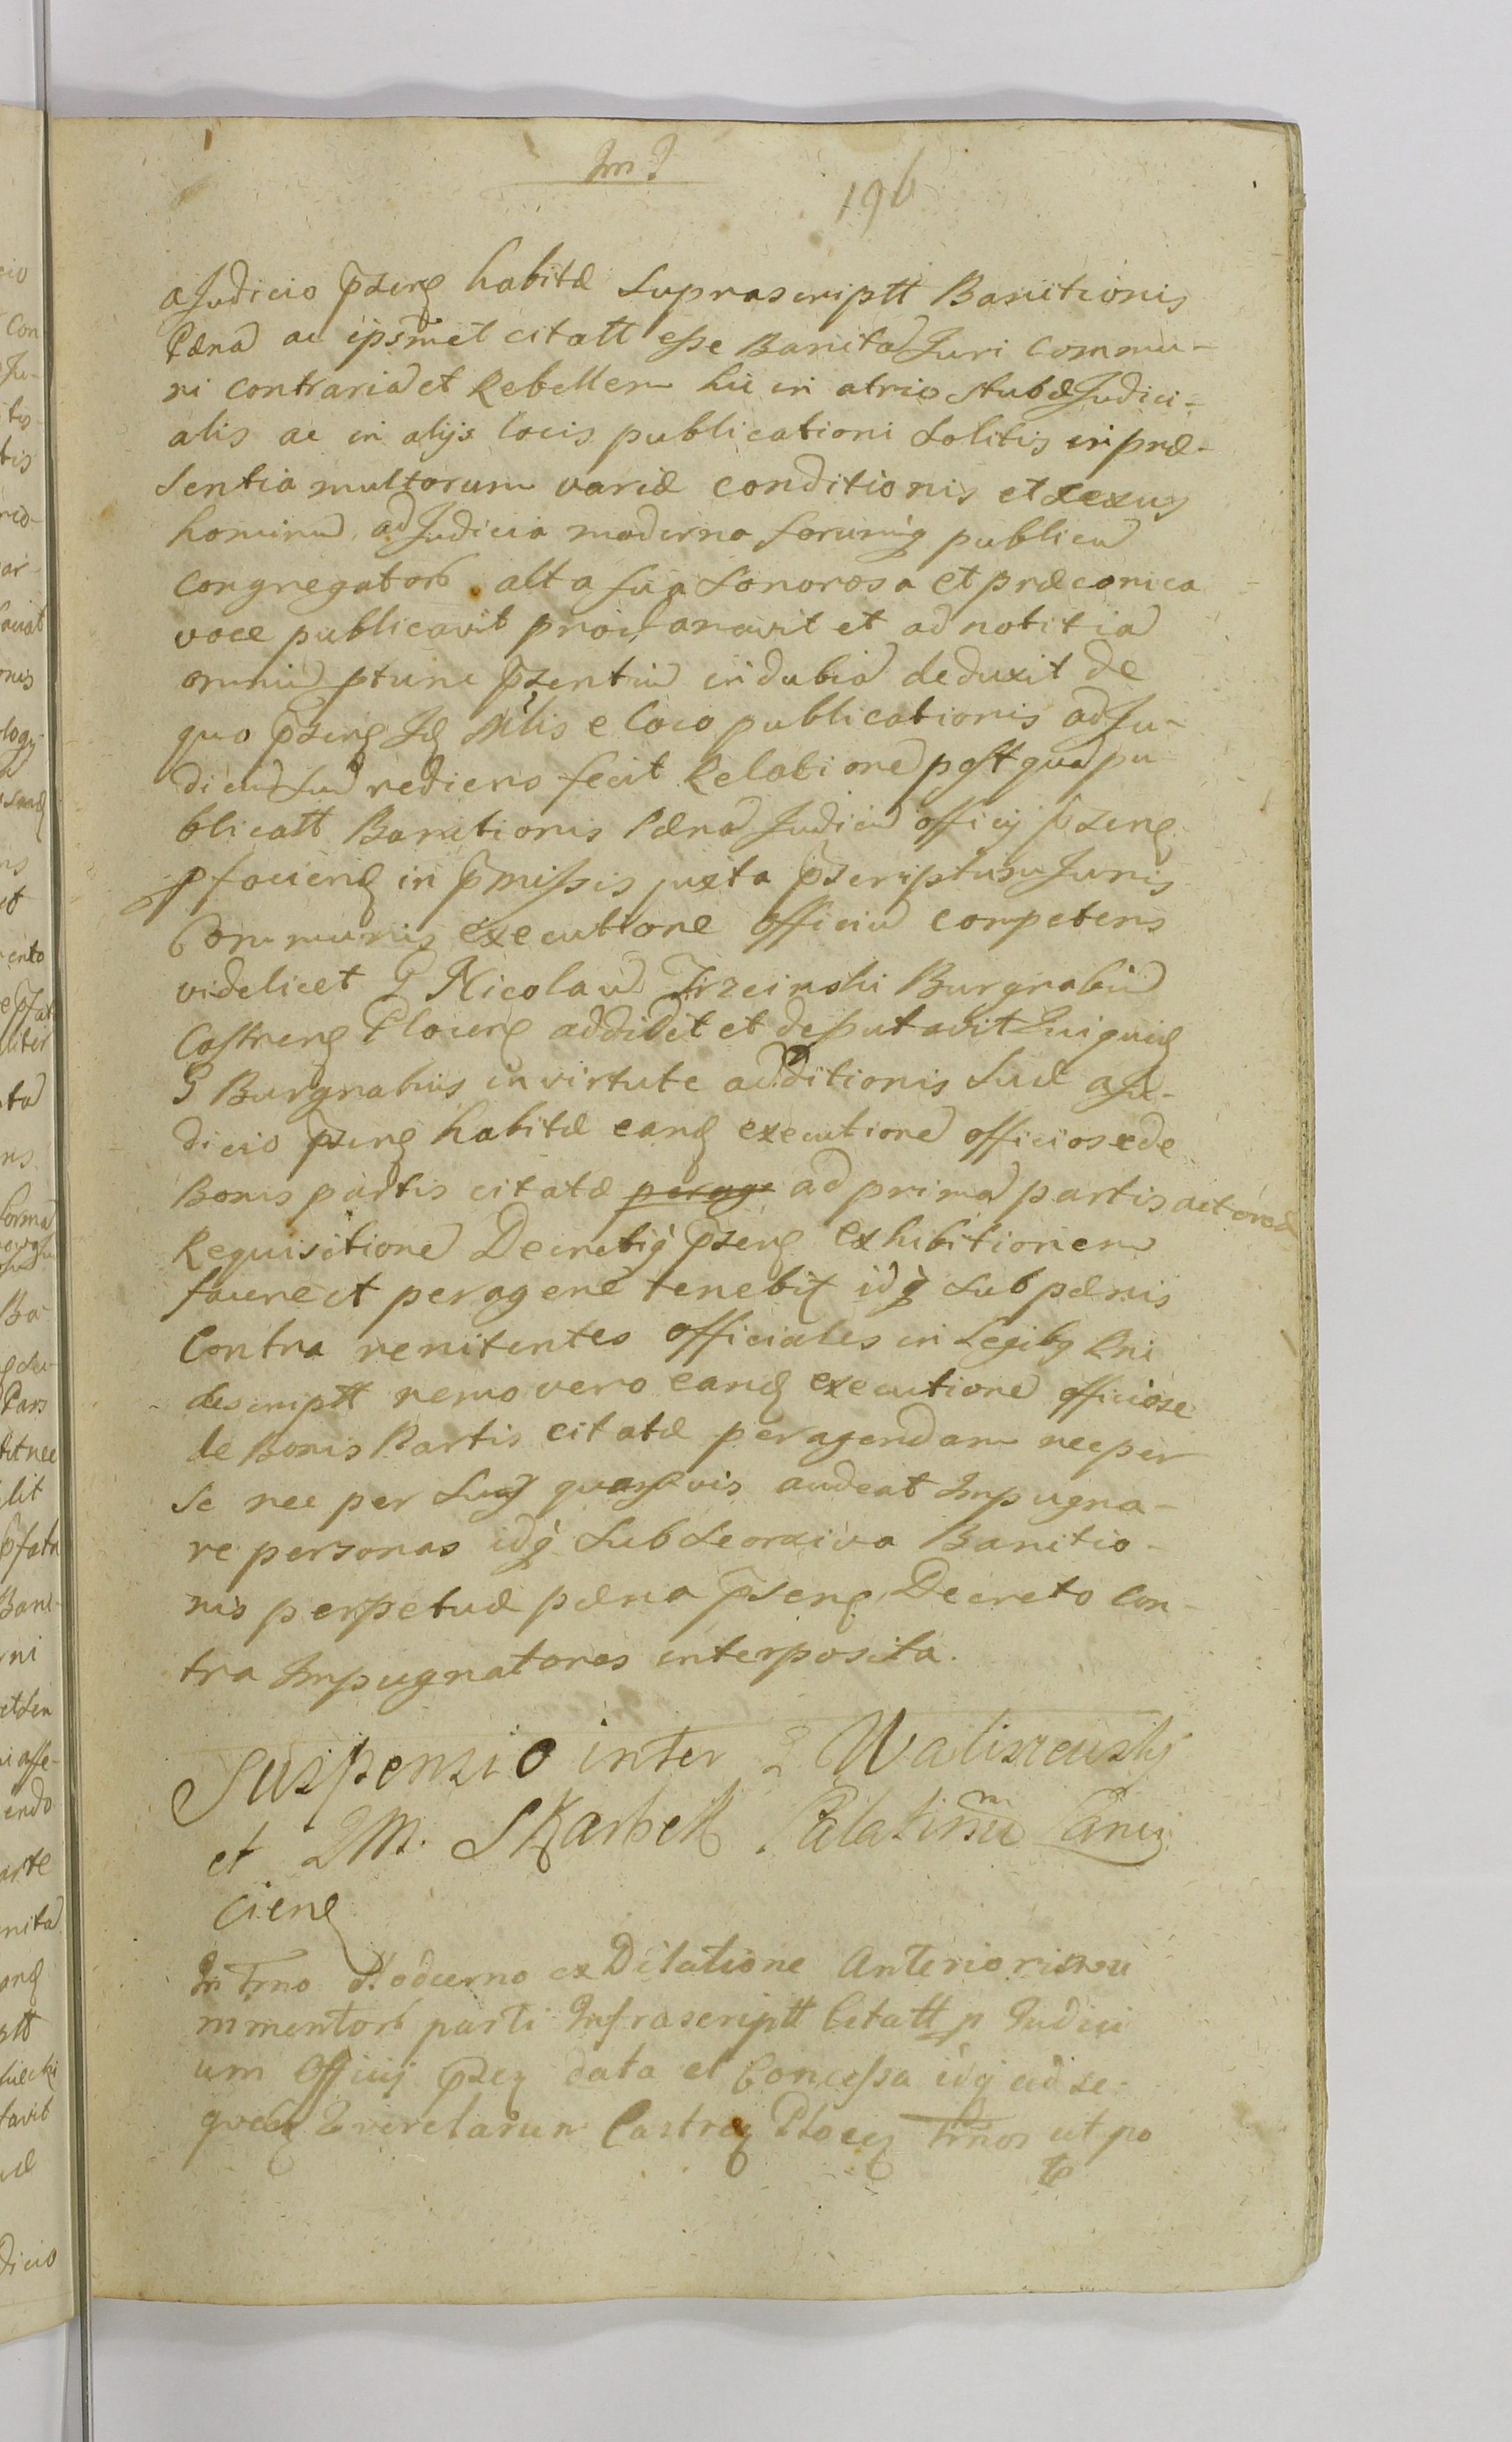 196
a Judicio pszeng habitæ Suprascriptt Banitionis
Pæna ac ipsmet citatt esse Banita Juri Commu-
ni contraria et Rebellem hic in atrio stubæ Judici-
alis ac in alijs locis publicationi solitis in præ-
sentia multorum variæ conditionis et sexus
hominu ad Judicia moderna forumq publicu
congregator alta sua sonorosa et præconica
voce publicavit proclamavit et ad notitia
omniu ptunc pszentiu indubia deduxit de
quo pszens Id Mlis e loco publicationis ad Ju-
diciu suu rediens fecit Relatione post qua pu
blicatt Banitionis Pæna Judiciu officij pszens
p faciend in pmissis juxta pscriptum Juris
Communis executione officiu competens
videlicet G Nicolau Trzcinski Burgrabiu
Castrens Plocens addidit et deputavit Qui quid
G Burgrabius in virtute additionis suæ a Ju-
dicio pszens habitæ eand executione officiose de
Bonis partis citatæ perage ad prima partis actoreæ
Requisitione Decretiq pszens exhibitionem
facere et peragere tenebit idq sub pænis
Contra renitentes officiales in Legibq Rni
descriptt nemo vero eand executione officiose
de Bonis Partis citatæ peragendam nec per
se nec per suas quasvis audeat Impugna-
re personas idq sub
Banitio-
nis perpetuæ pæna pszens Decreto con-
tra Impugnatores interposita.
Suspensio inter G Waliszewski
et GM. Skarbek Palatinu Lanci
ciens
In Trno Hodierno ex Dilatione Anteriori
mmentor parti Infrascriptt Citatt p Judici
um Officij pszens data et Concessa idq ad se-
quens Querelarum Castren Plocen Trnos ut po